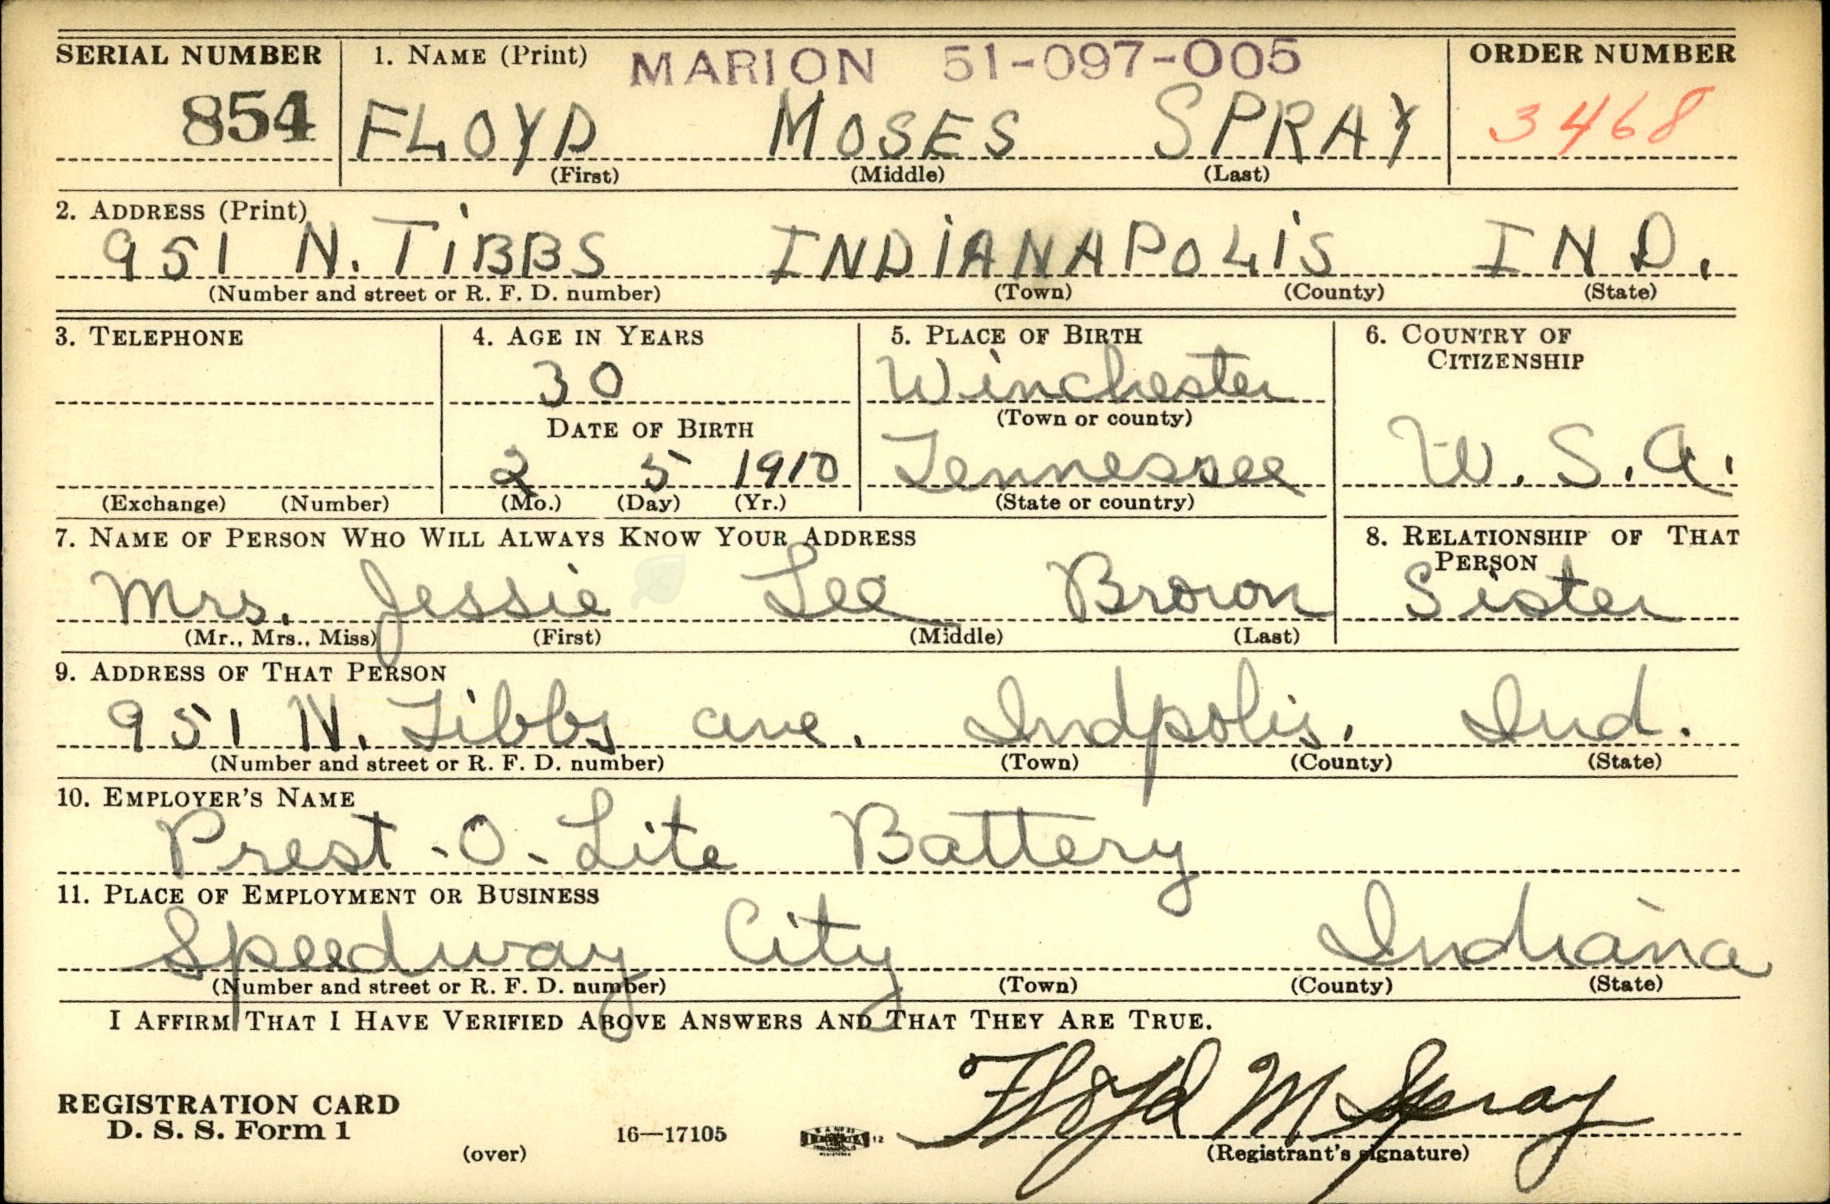 SERIAL NUMBER 1. NAME (Print) MARION 51-097-005 ORDER NUMBER
854 FLOYD MOSES SPRAY 3468
(First) (Middle) (Last)
2. ADDRESS (Print)
951 N. TIBBS INDIANAPOLIS IND.
(Number and street or R. F. D. number) (Town) (County) (State)
3. TELEPHONE 4. AGE IN YEARS 5. PLACE OF BIRTH 6. COUNTRY OF
CITIZENSHIP
30 Winchester
(Town or county)
DATE OF BIRTH
2 5 1910 Tennessee U.S.A.
(Exchange) (Number) (Mo.) (Day) (Yr.) (State or country)
7. NAME OF PERSON WHO WILL ALWAYS KNOW YOUR ADDRESS 8. RELATIONSHIP OF THAT
PERSON
Mrs. Jessie Lee Brown Sister
(Mr., Mrs., Miss) (First) (Middle) (Last)
9. ADDRESS OF THAT PERSON
951 N. Tibbs ave. Indpolis. Ind.
(Number and street or R. F. D. number) (Town) (County) (State)
10. EMPLOYER'S NAME
Prest-O-Lite Battery
11. PLACE OF EMPLOYMENT OR BUSINESS
Speedway City Indiana
(Number and street or R. F. D. number) (Town) (County) (State)
I AFFIRM THAT I HAVE VERIFIED ABOVE ANSWERS AND THAT THEY ARE TRUE.
Floyd M Spray
REGISTRATION CARD
D. S. S. Form 1 16—17105 12
(over) (Registrant's signature)